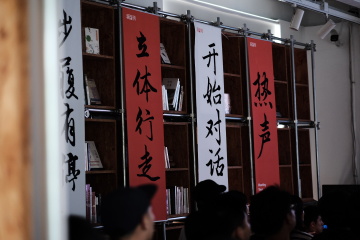 步履有亭
立体行走
开始对话
热声